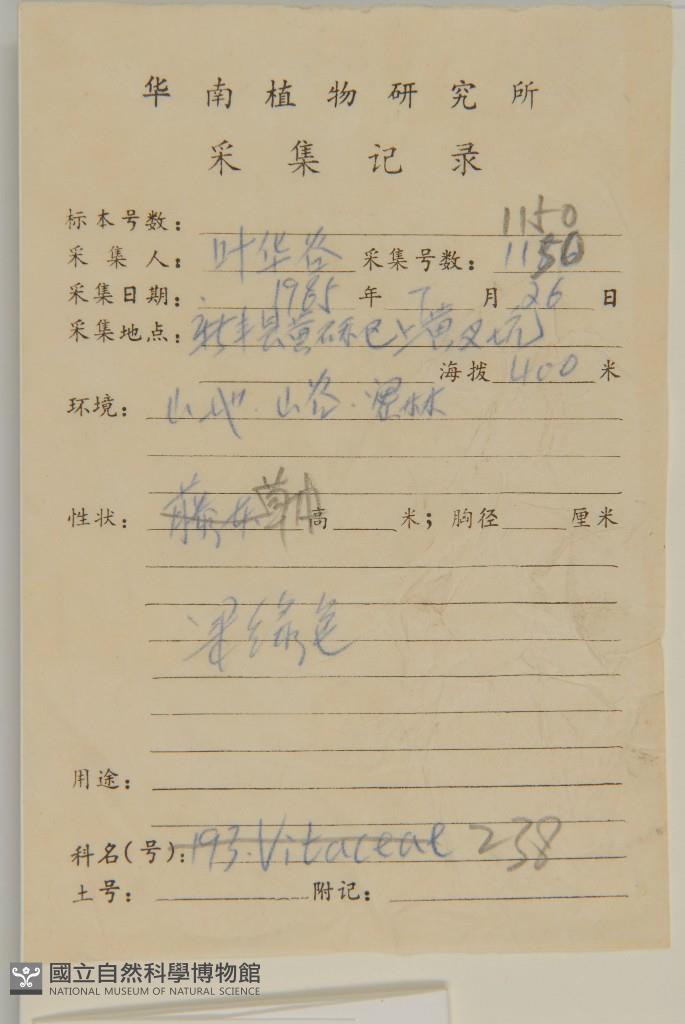 华南植物研究所
采集记录
标本号数: 1150
采集人: 叶华谷 采集号数: 1150
采集日期: 1985 年 月 26 日
采集地点: 新丰县黄磜区上黄叉坑
海拨 400 米
环境: 山地. 山谷.
性状: 藤本 草 高 米; 胸径 厘米
绿色
用途:
科名(号): 193. Vitaceae 238
土号: 附记:
國立自然科學博物館
NATIONAL MUSEUM OF NATURAL SCIENCE